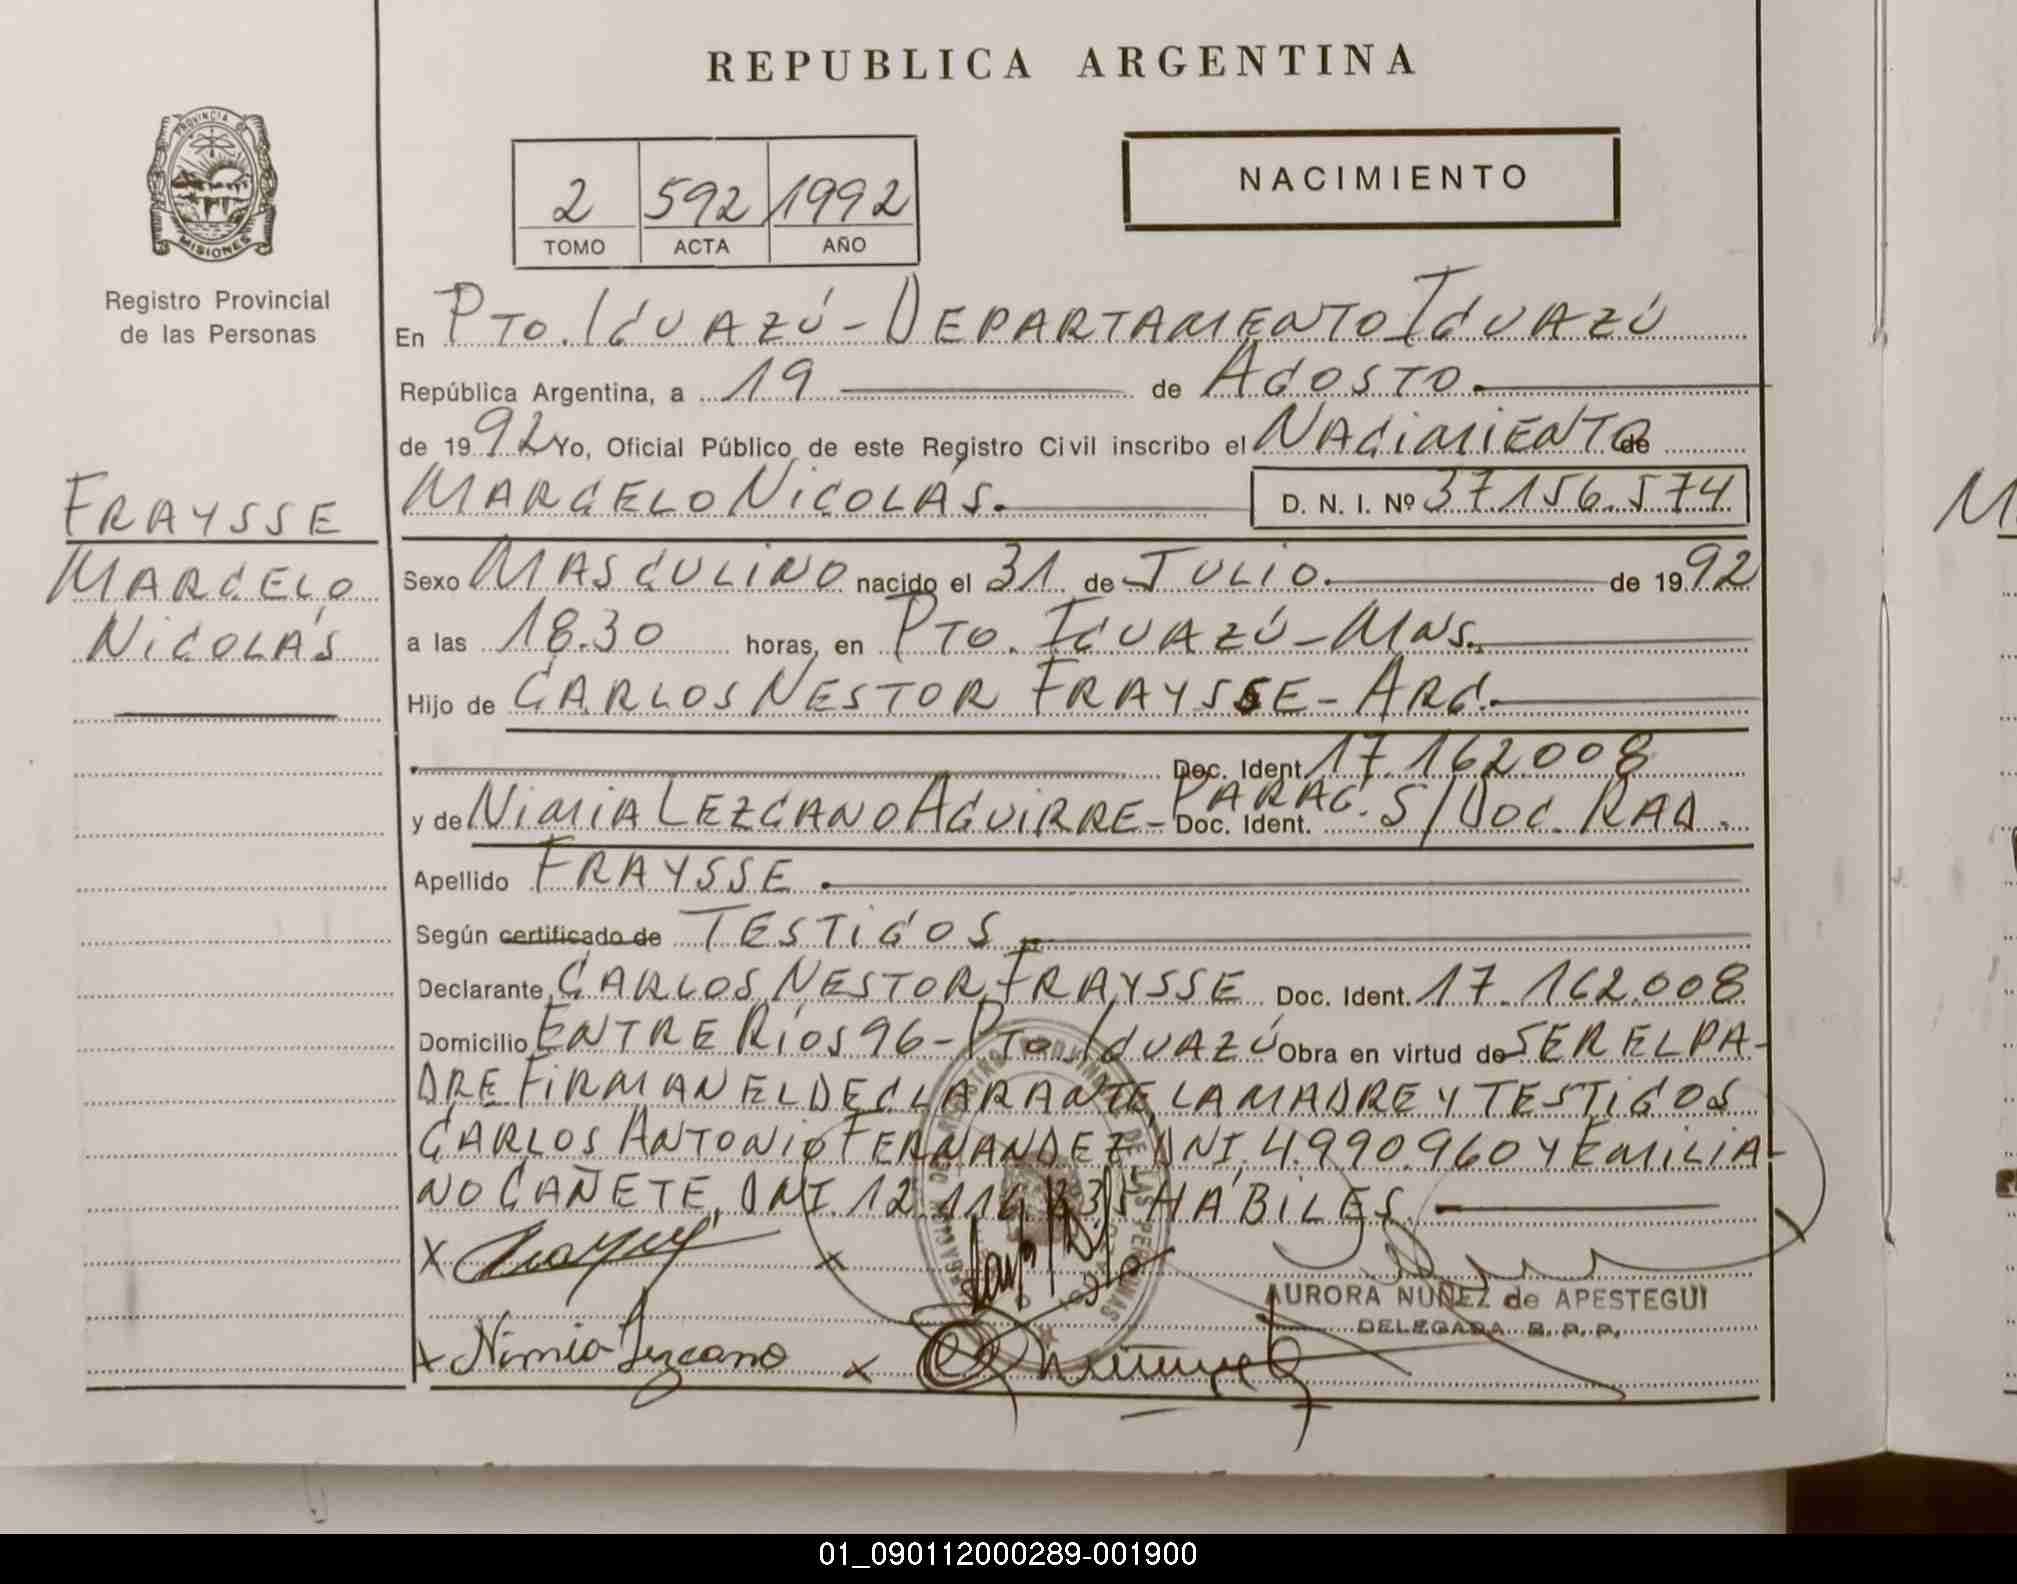 REPUBLICA ARGENTINA
PROVINCIA DE
MISIONES
Registro Provincial
de las Personas
2 592 1992
TOMO ACTA AÑO
NACIMIENTO
En PTO. IGUAZÚ - DEPARTAMENTO IGUAZÚ
República Argentina, a 19 de AGOSTO.
de 1992 Yo, Oficial Público de este Registro Civil inscribo el NACIMIENTO de
MARCELO NICOLÁS. D. N. I. Nº 37.156.574
FRAYSSE
MARCELO
NICOLÁS
Sexo MASCULINO nacido el 31 de JULIO. de 1992
a las 18.30 horas, en PTO. IGUAZÚ - MNS.
Hijo de CARLOS NESTOR FRAYSSE - ARG.
Doc. Ident. 17.162.008
y de NIMIA LEZCANO AGUIRRE - PARAG. Doc. Ident. S/DOC. RAD.
Apellido FRAYSSE.
Según certificado de TESTIGOS
Declarante CARLOS NESTOR FRAYSSE Doc. Ident. 17.162.008
Domicilio ENTRE RÍOS 96 - PTO. IGUAZÚ Obra en virtud de SER EL PA-
DRE FIRMAN EL DECLARANTE, LA MADRE Y TESTIGOS
CARLOS ANTONIO FERNANDEZ, DNI. 4.990.960 Y EMILIA-
NO CAÑETE, DNI. 12. HÁBILES.
X
X
AURORA NUÑEZ de APESTEGUI
DELEGADA R. P. P.
X Nimia Lezcano X
M
01_090112000289-001900